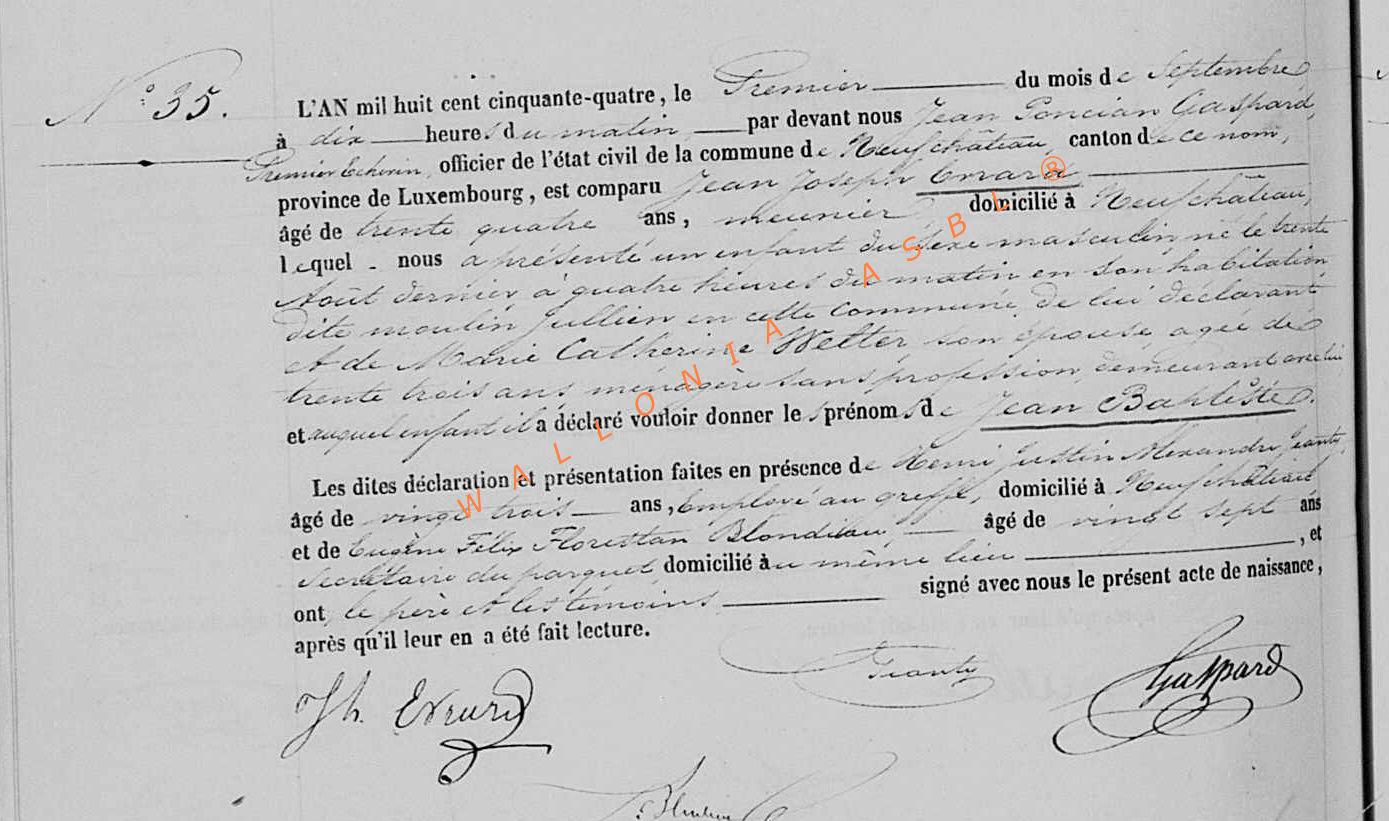 N° 35.
L'AN mil huit cent cinquante-quatre, le Premier du mois de Septembre
à dix heures du matin par devant nous Jean Poncian Gaspard,
Premier Echevin, officier de l'état civil de la commune de Neufchâteau, canton de ce nom,
province de Luxembourg, est comparu Jean Joseph Evrard,
âgé de trente quatre ans, meunier domicilié à Neufchâteau,
lequel nous a présenté un enfant du sexe masculin né le trente
Août dernier à quatre heures du matin en son habitation
dite moulin Jullien en cette commune, de lui déclarant
et de Marie Catherine Welter son épouse, agée de
trente trois ans ménagère sans profession, demeurant avec lui
et auquel enfant il a déclaré vouloir donner les prénoms de Jean Baptiste.
Les dites déclaration et présentation faites en présence de Henri Justin Alexandre Jeanty,
âgé de vingt trois ans, Employé au greffe, domicilié à Neufchâteau
et de Eugène Félix Florestan Blondiau, âgé de vingt sept ans
Secrétaire du parquet, domicilié au même lieu, et
ont le père et les témoins signé avec nous le présent acte de naissance,
après qu'il leur en a été fait lecture.
Jh. Evrard
Jeanty
Gaspard
WALLONIA ASBL®